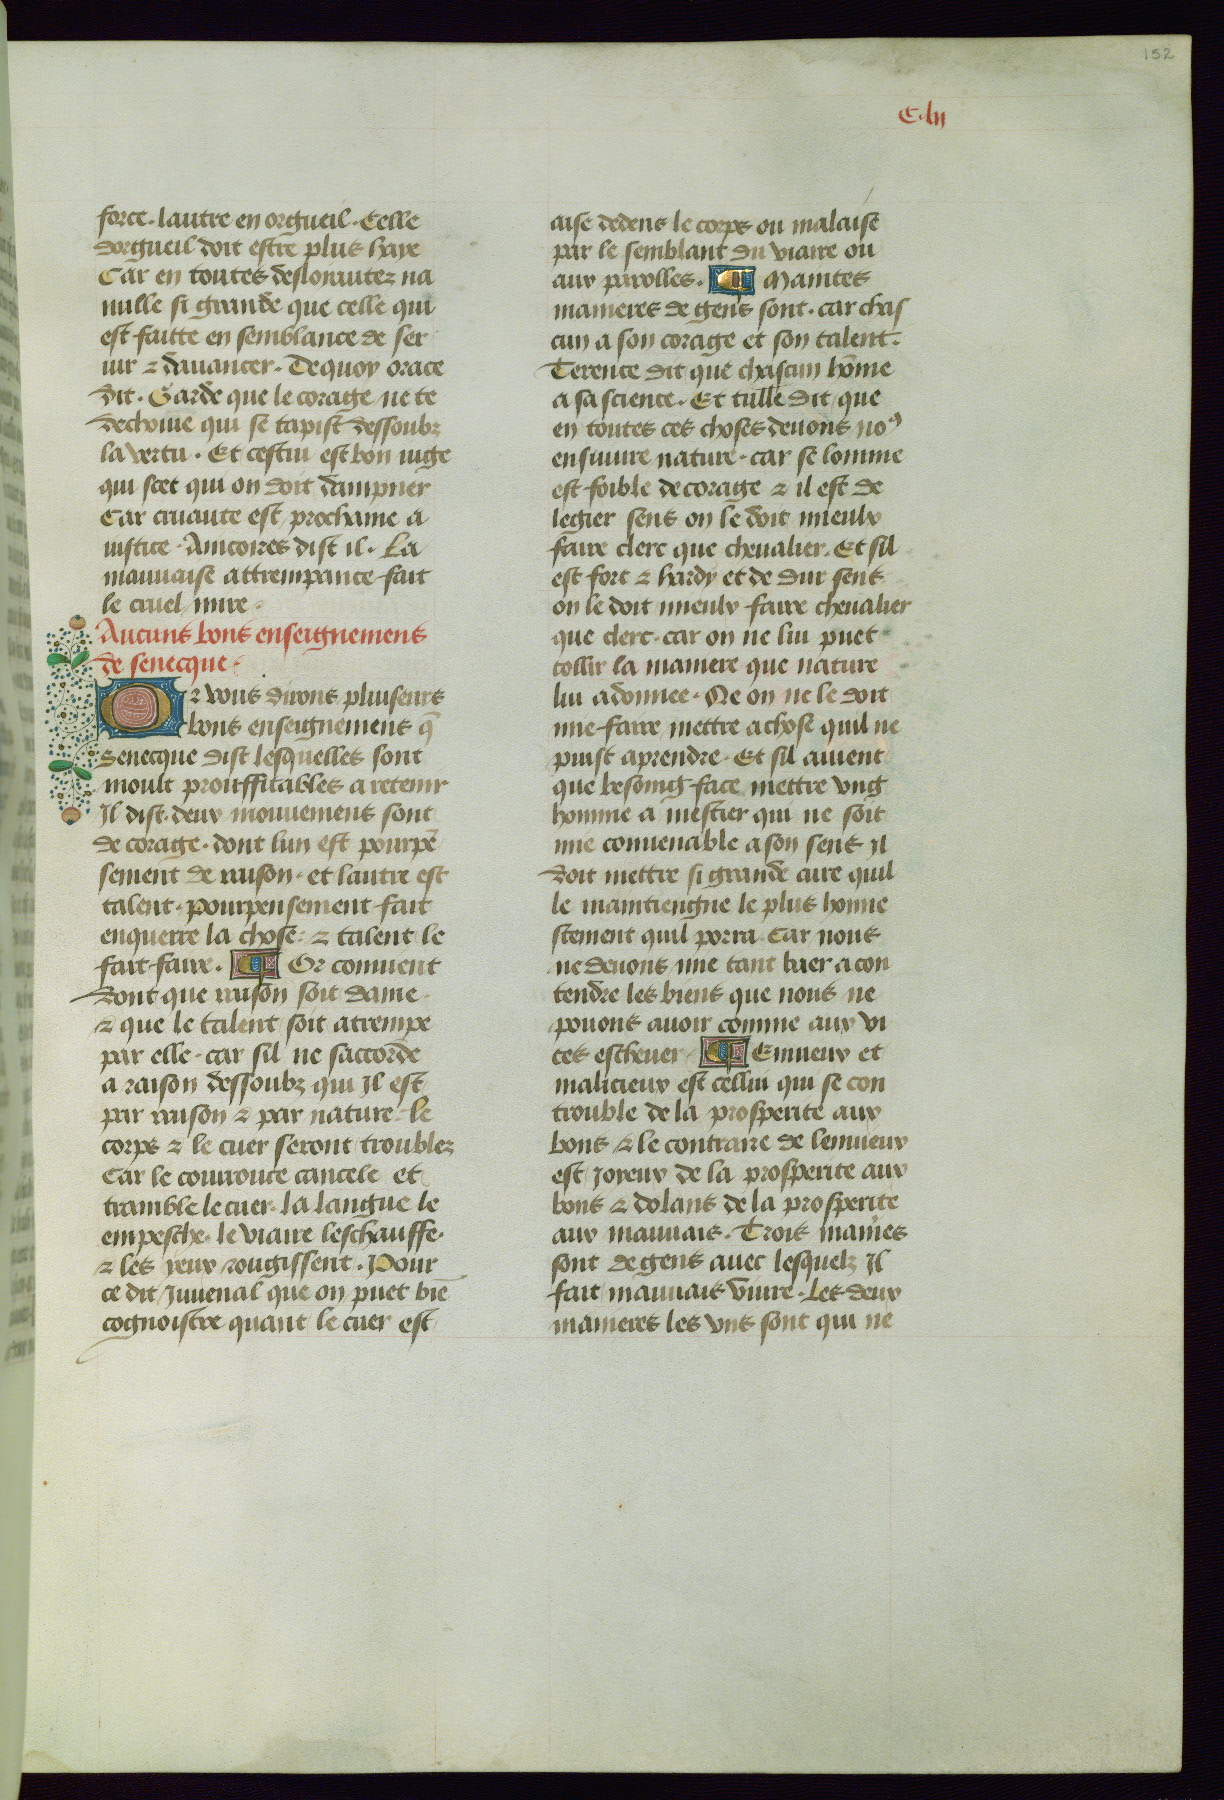 152
C.lii
force. lautre en orgueil. Celle
dorgueil doit estre plus haye
Car en toutes desloiautez na
nulle si grande que celle qui
est faitte en semblance de ser
uir ⁊ dauancer. De quoy orace
dit. Garde que le corage ne te
dechoiue qui se tapist dessoubz
la vertu. Et cestui est bon iuge
qui scet qui on doit dampner
Car cruaute est prochaine a
iustice. Ancoires dist il. La
mauuaise attrempance fait
le cruel mire.
Aucuns bons enseignemens
de senecque.
Or vous dirons pluiseurs
bons enseignemens q̄
Senecque dist lesquelles sont
moult prouffitables a retenir
Il dist. deux mouuemens sont
de corage. dont lun est pourpē
sement de raison. et lautre est
talent. pourpensement fait
enquerre la chose. ⁊ talent le
fait faire. Or conuient
dont que raison soit dame
⁊ que le talent soit atrempe
par elle. car sil ne saccorde
a raison dessoubz qui Il est
par raison ⁊ par nature. le
corps ⁊ le cuer seront troublez
Car le courouce cancele et
tramble le cuer. la langue le
empesche. le viaire leschauffe.
⁊ les yeux rougissent. Pour
ce dit Iuuenal que on puet biē
cognoistre quant le cuer est
aise dedens le corps ou malaise
par le semblant du viaire ou
aux parolles. Maintes
manieres de gens sont. car chas
cun a son corage et son talent.
Terence dit que chascun hōme
a sa science. Et tulle dit que
en toutes ces choses deuons noꝰ
ensuiure nature. car se lomme
est foible de corage ⁊ il est de
legier sens on le doit mieulx
faire clerc que cheualier. Et sil
est fort ⁊ hardy et de dur sens
on le doit mieulx faire cheualier
que clerc. car on ne lui puet
tollir la maniere que nature
lui a donnee. Ne on ne le doit
mie faire mettre a chose quil ne
puist aprendre. Et sil auient
que besoing face mettre vng
homme a mestier qui ne soit
mie conuenable a son sens Il
doit mettre si grande cure quil
le maintiengne le plus honne
stement quil porra. Car nous
ne deuons mie tant baer a con
tendre les biens que nous ne
pouons auoir comme aux vi
ces escheuer. Enuieux et
malicieux est cellui qui se con
trouble de la prosperite aux
bons ⁊ le contraire de lenuieux
est Ioyeux de la prosperite aux
bons ⁊ dolans de la prosperite
aux mauuais. Trois manie͛s
sont de gens auec lesquelz Il
fait mauuais viure. Les deux
manieres les vns sont qui ne